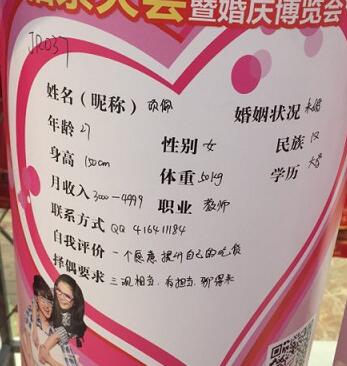 大会 暨婚庆博览会
JR037
姓名（昵称） 欢佩 婚姻状况 未婚
年龄 27 性别 女 民族 汉
身高 150cm 体重 50kg 学历 大专
月收入 3000-4999 职业 教师
联系方式 QQ 416411184
自我评价 一个愿意提升自己的吃货
择偶要求 三观相当.有担当.聊得来